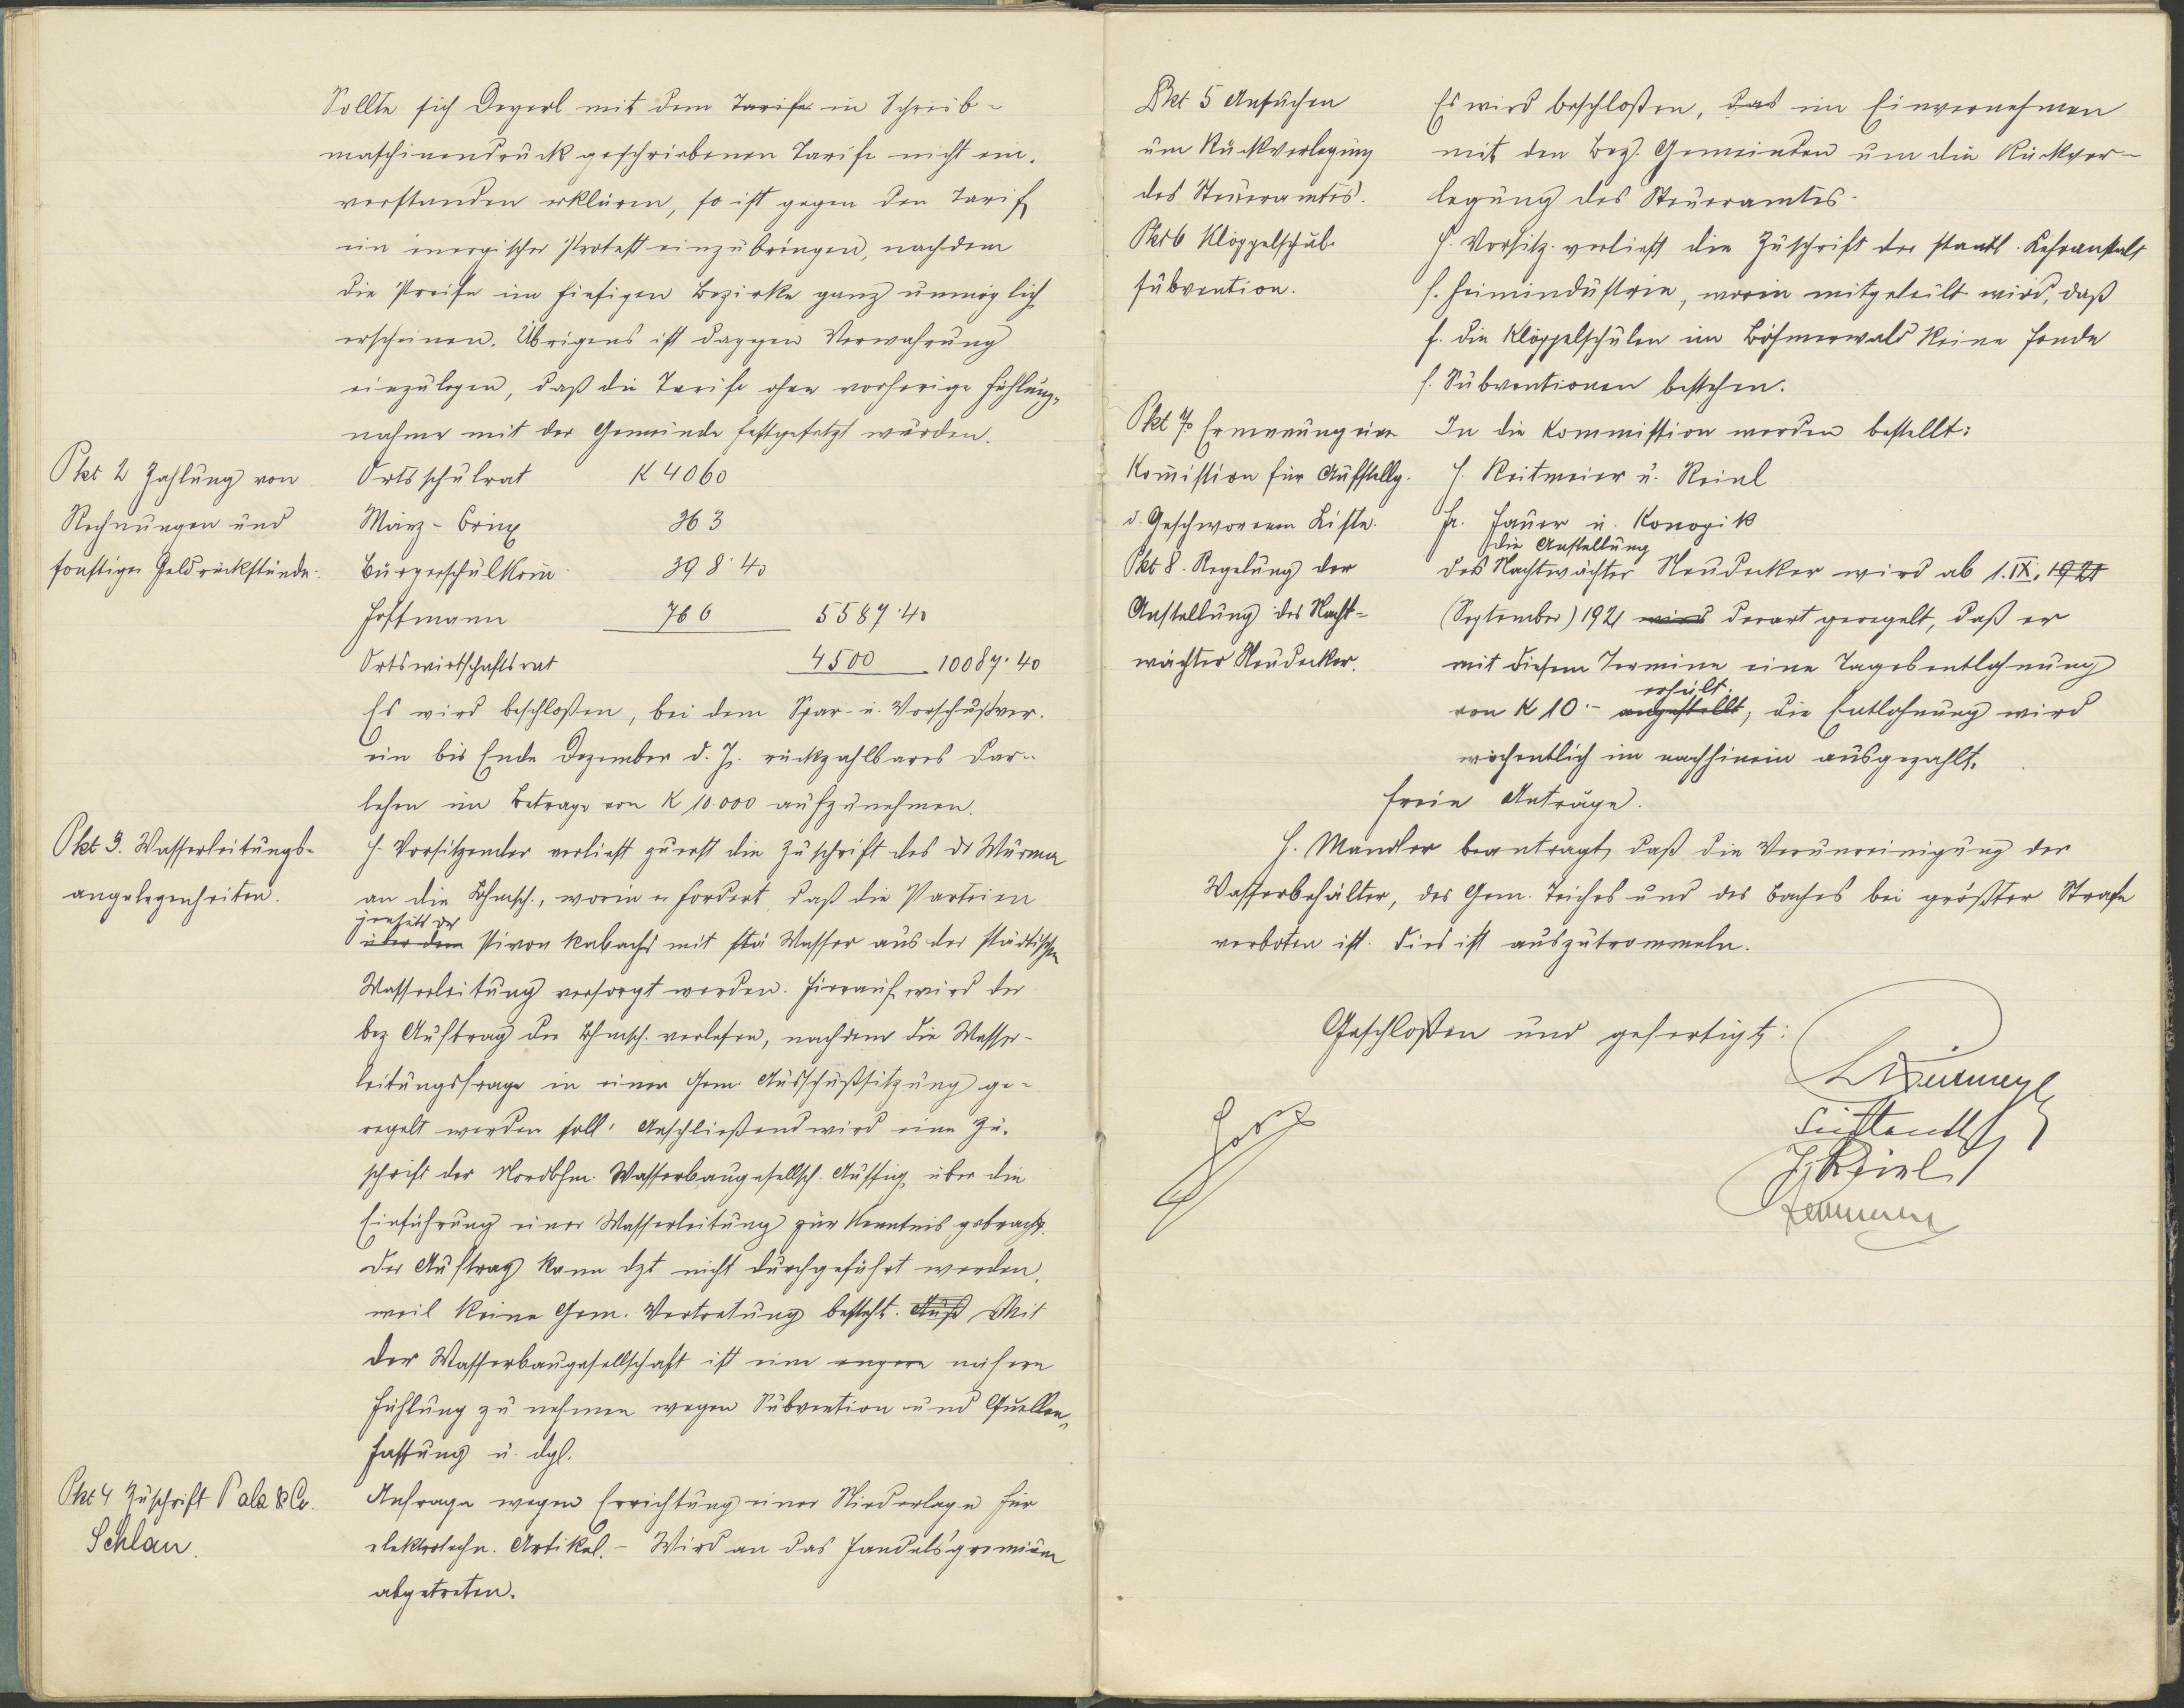 Sollte sich Deyerl mit dem Tarife in Schreib-
maschinendruck geschriebenen Tarife nicht ein-
verstanden erklären, so ist gegen den Tarif
ein energischer Protest einzubringen, nachdem
die Preise im hiesigen Bezirke ganz unmöglich
erscheinen. Übrigens ist dagegen Verwahrung
einzulegen, daß die Tarife ohne vorherige Fühlung-
nahme mit der Gemeinde festgesetzt wurden.
Pkt 2 Zahlung von
Rechnungen und
sonstiger Geldrückstände.
Ortsschulrat K 4060
März- 363
Bürgerschulkom̄ 398·40
Hoffmann 766 5587·40
Ortswirtschaftsrat 4500 10087·40
Es wird beschloßen, bei dem Spar- u. Vorschußver.
ein bis Ende Dezember d. J. rückzahlbares Dar-
lehen im Betrage von K 10.000 aufzunehmen.
Pkt 3. Wasserleitungs-
angelegenheiten.
H. Vorsitzender verließt zuerst die Zuschrift des Dr Wurm
an die Bhmsch., worin er fordert, daß die Parteien
jenseits des
über dem mit stä Wasser aus der städtischen
Wasserleitung versorgt werden. Hierauf wird der
bez Auftrag der Bhmsch. verlesen, nachdem die Wasser-
leitungsfrage in einer Gem. Ausschußsitzung ge-
regelt werden soll. Anschließend wird eine Zu-
schrift der Nordbhm. Wasserbaugesellsch. Aussig über die
Einführung einer Wasserleitung zur Kenntnis gebracht.
Der Auftrag kann dzt nicht durchgeführt werden,
weil keine Gem. Vertretung besteht. Mit
der Wasserbaugesellschaft ist eine engere nähere
Fühlung zu nehmen wegen Subvention und Quellen-
fassung u. dgl.
Pkt 4 Zuschrift Pala & Co.
Schlan.
Anfrage wegen Errichtung einer Niederlage für
elektrotechn. Artikel. – Wird an das Handelsgremium
abgetreten.
Pkt 5 Ansuchen
um Rückverlegung
des Steueramtes.
Es wird beschloßen, das im Einvernehmen
mit den Bez. Gemeinden um die Rückver-
legung des Steueramtes.
Pkt 6 Klöppelschul-
subvention.
H. Vorsitz. verließt die Zuschrift der staatl. Lehranstalt
f. Heimindustrie, worin mitgeteilt wird, daß
f. die Klöppelschulen im Böhmerwald keine Fonde
f. Subventionen bestehen.
Pkt 7. Ernennung einer
Kom̄ission für Aufstellg.
d. Geschworenen Liste.
In die Kommission werden bestellt:
H. Reitmeier u. Reinl
Fr. Hauer u. Konopik
Pkt 8. Regelung der
Anstellung des Nacht-
wächter Neudecker.
die Anstellung
des Nachtwächter Neudecker wird ab 1. IX. 1921
(September) 1921 wird derart geregelt, daß er
mit diesem Termine eine Tagesentlohnung
erhält.
von K 10·– angestellt, die Entlohnung wird
wöchentlich im nachhinein ausgezahlt.
Freie Anträge.
H. Mandler beantragt, daß die Verunreinigung der
Wasserbehälter, des Gem. Teiches und des Baches bei größter Strafe
verboten ist. Dies ist auszutrommeln.
Geschloßen und gefertigt: